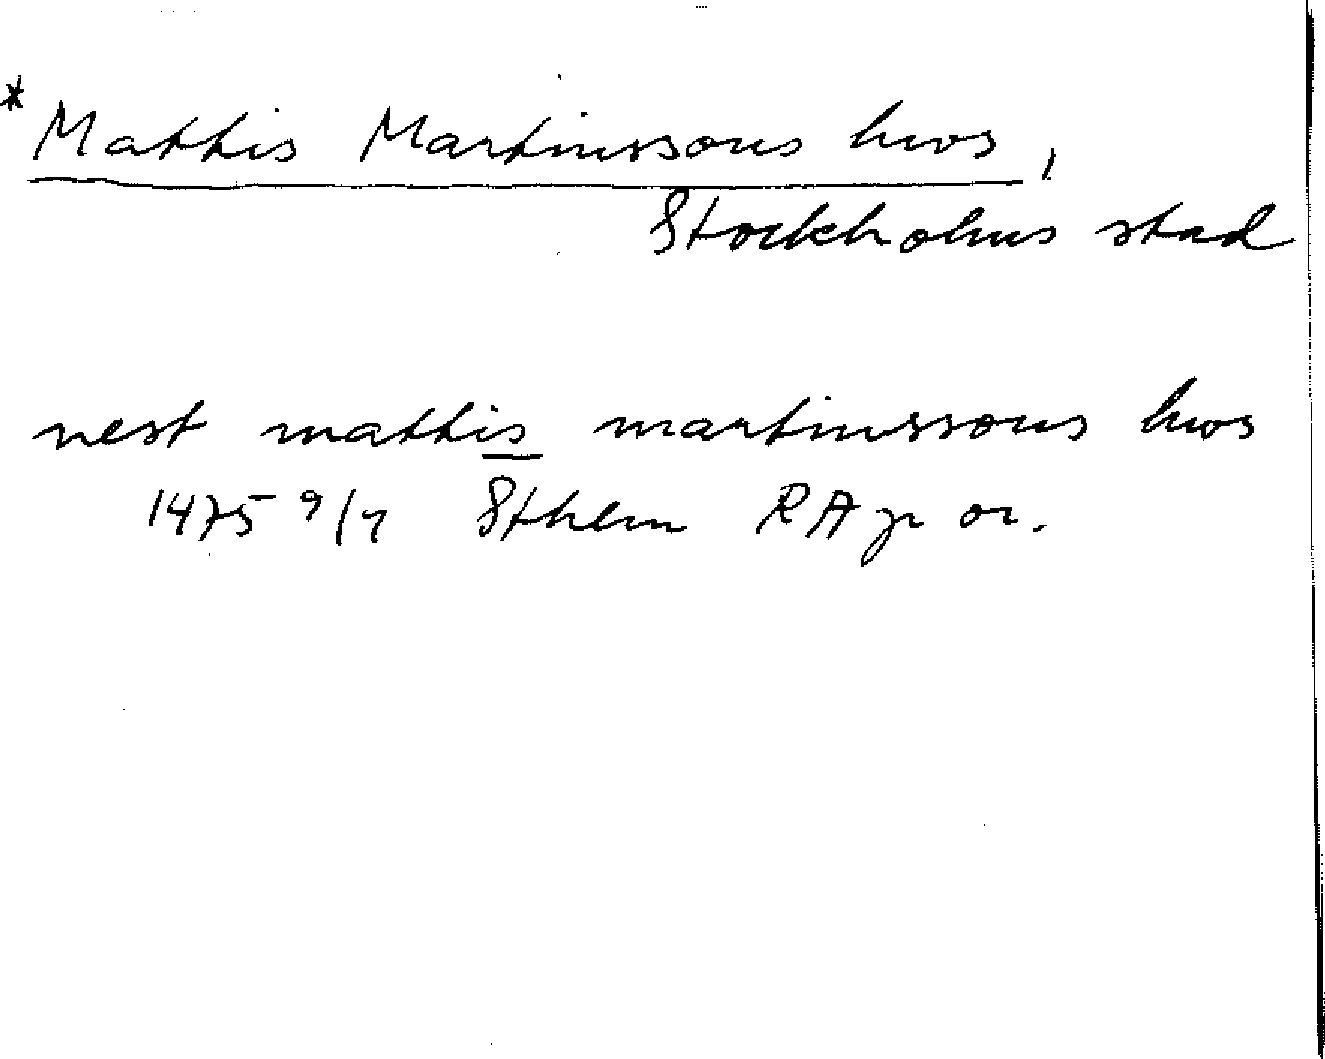 * Mattis Martinssons hws,
Stockholms stad
nest mattis martinssons hws
1475 9/7 Sthlm RAp or.